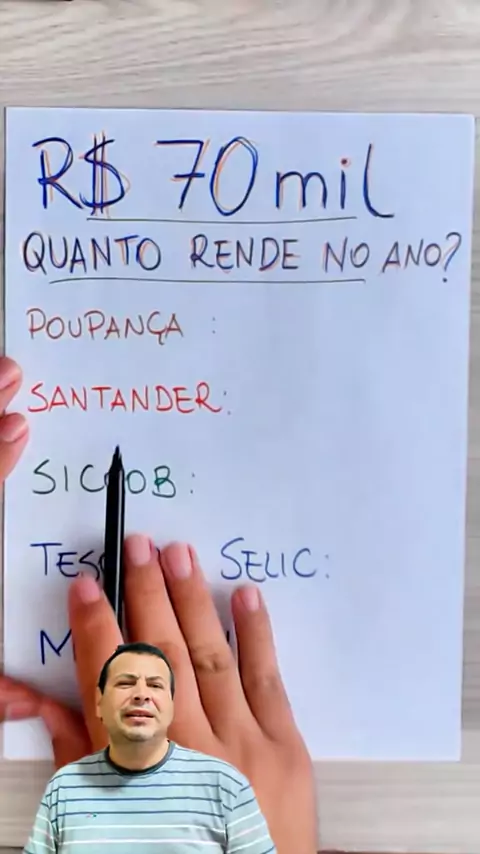 R$ 70 mil
QUANTO RENDE NO ANO?
POUPANÇA :
SANTANDER:
SICOOB:
SELIC: